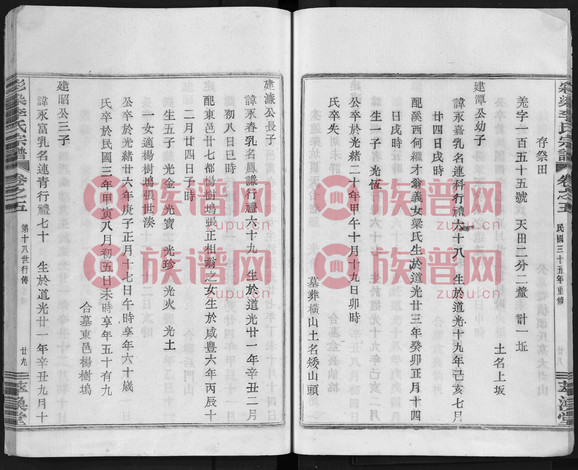 存祭田
羌字一百五十五號 天田二分二釐 計一坵
土名上坂
建潭公幼子
諱永嘉乳名連科行禮六十八 生於道光十九年己亥七月
廿四日戌時
配溪西何繼才翁義女梁氏生於道光廿三年癸卯正月十四
日戌時
生一子 光恆
公卒於光緒二十年甲午十月十九日卯時
氏卒失
墓葬橫山土名矮山頭
民國三十五年重修
廿八
建濂公長子
諱永春乳名鳳謙行禮六十九 生於道光廿一年辛丑二月
初八日巳時
配東邑廿七都樹樹塢張正相翁之女生於咸豐六年丙辰十
二月廿四日子時
生五子 光金 光寶 光珍 光火 光土
一女適楊樹塢張世湊
公卒於光緒廿六年庚子正月十七日午時享年六十歲
氏卒於民國三年甲寅八月初五日未時享年五十有九
合墓東邑樹樹塢
建昭公三子
諱永富乳名連青行禮七十 生於道光廿一年辛丑九月十
李氏宗譜
卷之五
第十八世行傳
廿九
族谱网
zupu.cn